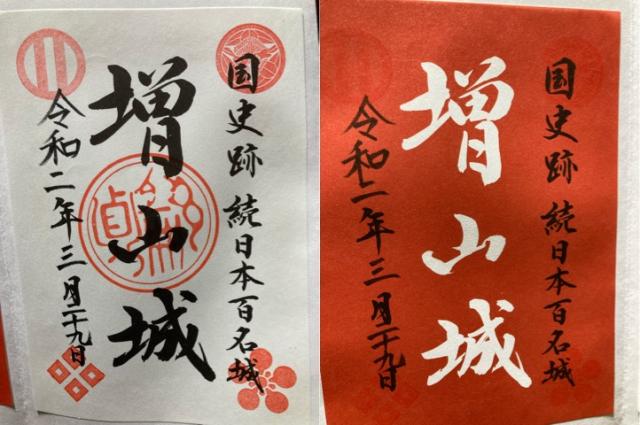 国史跡 続日本百名城
増山城
令和二年三月二十九日
国史跡 続日本百名城
増山城
令和二年三月二十九日